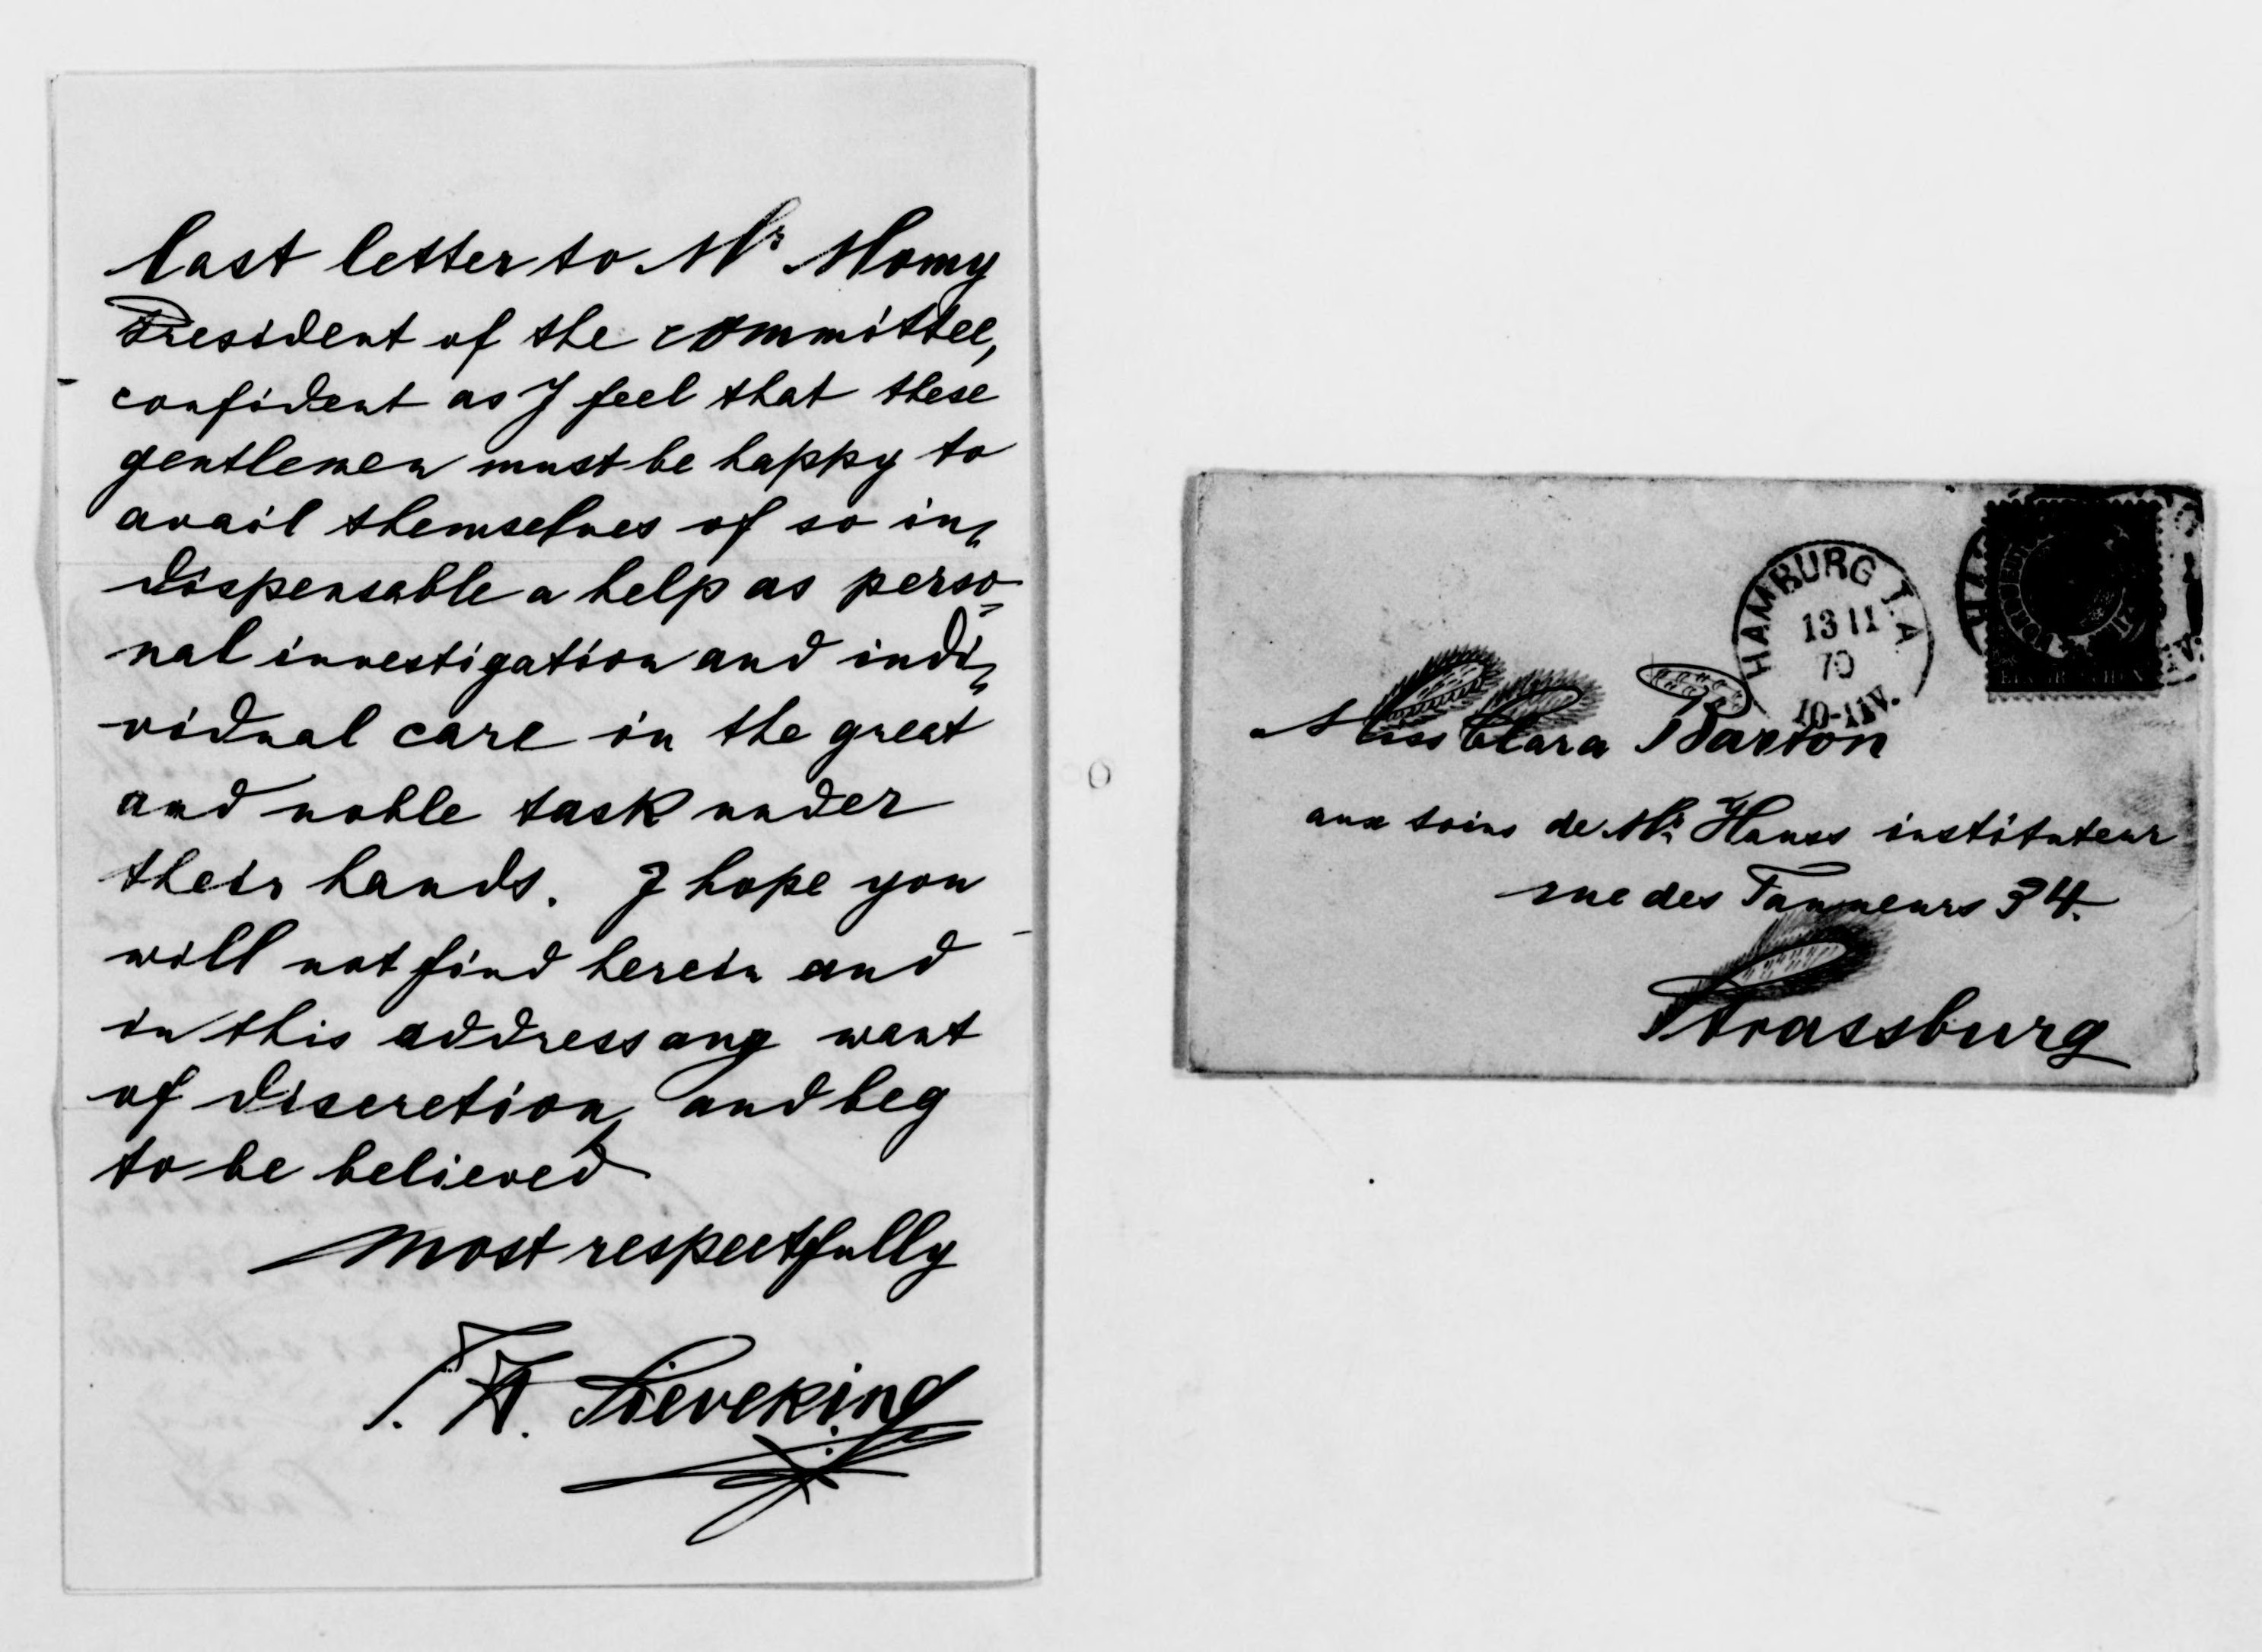 last letter to Mr Momy
President of the committee,
confident as I feel that these
gentlemen must be happy to
avail themselves of so in-
dispensable a help as perso-
nal investigation and indi-
vidual care in the great
and noble task under
their hands. I hope you
will not find herein and
in this address any want
of discretion, and beg
to be believed
most respectfully
F. A. Sieveking
HAMBURG I.A.
13 11
70
10-11V.
Miss Clara Barton
aux soins de Mr. Hauss instituteur
rue des Tanneurs 34.
Strassburg